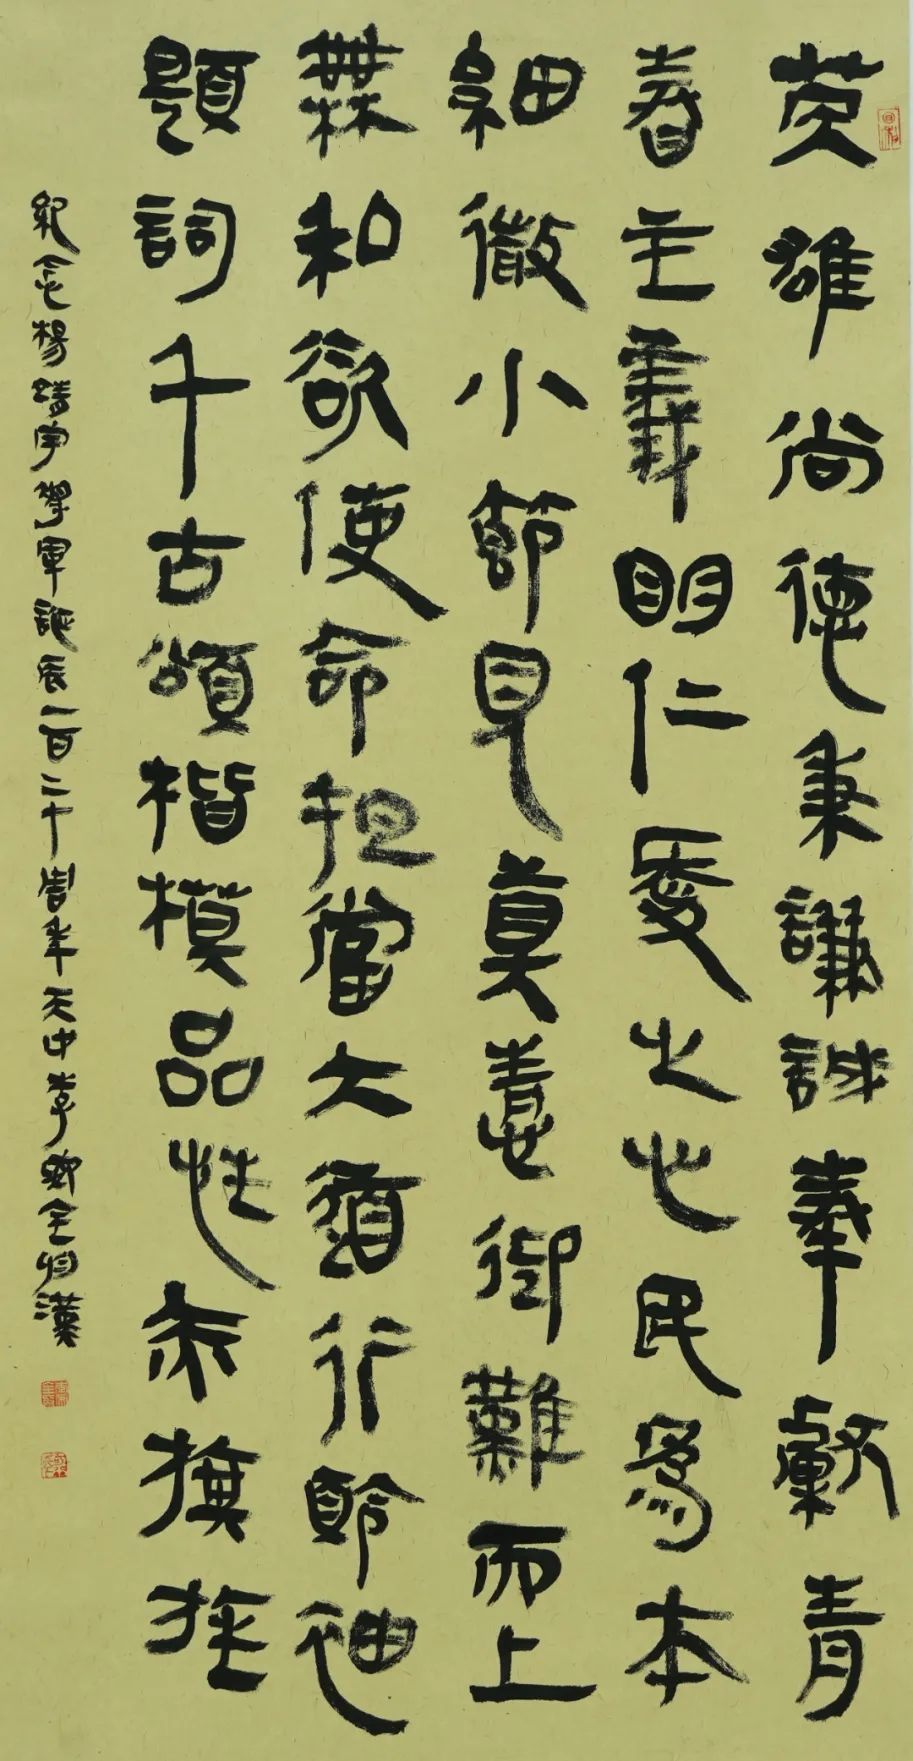 英雄尚德秉謙誠奉獻青
春主義明仁愛之心民為本
細微小節見真善御難而上
無私欲使命担當大道行領袖
題詞千古頌楷模品性旗旌
紀念楊靖宇將軍誕辰一百二十周年天中李全漢